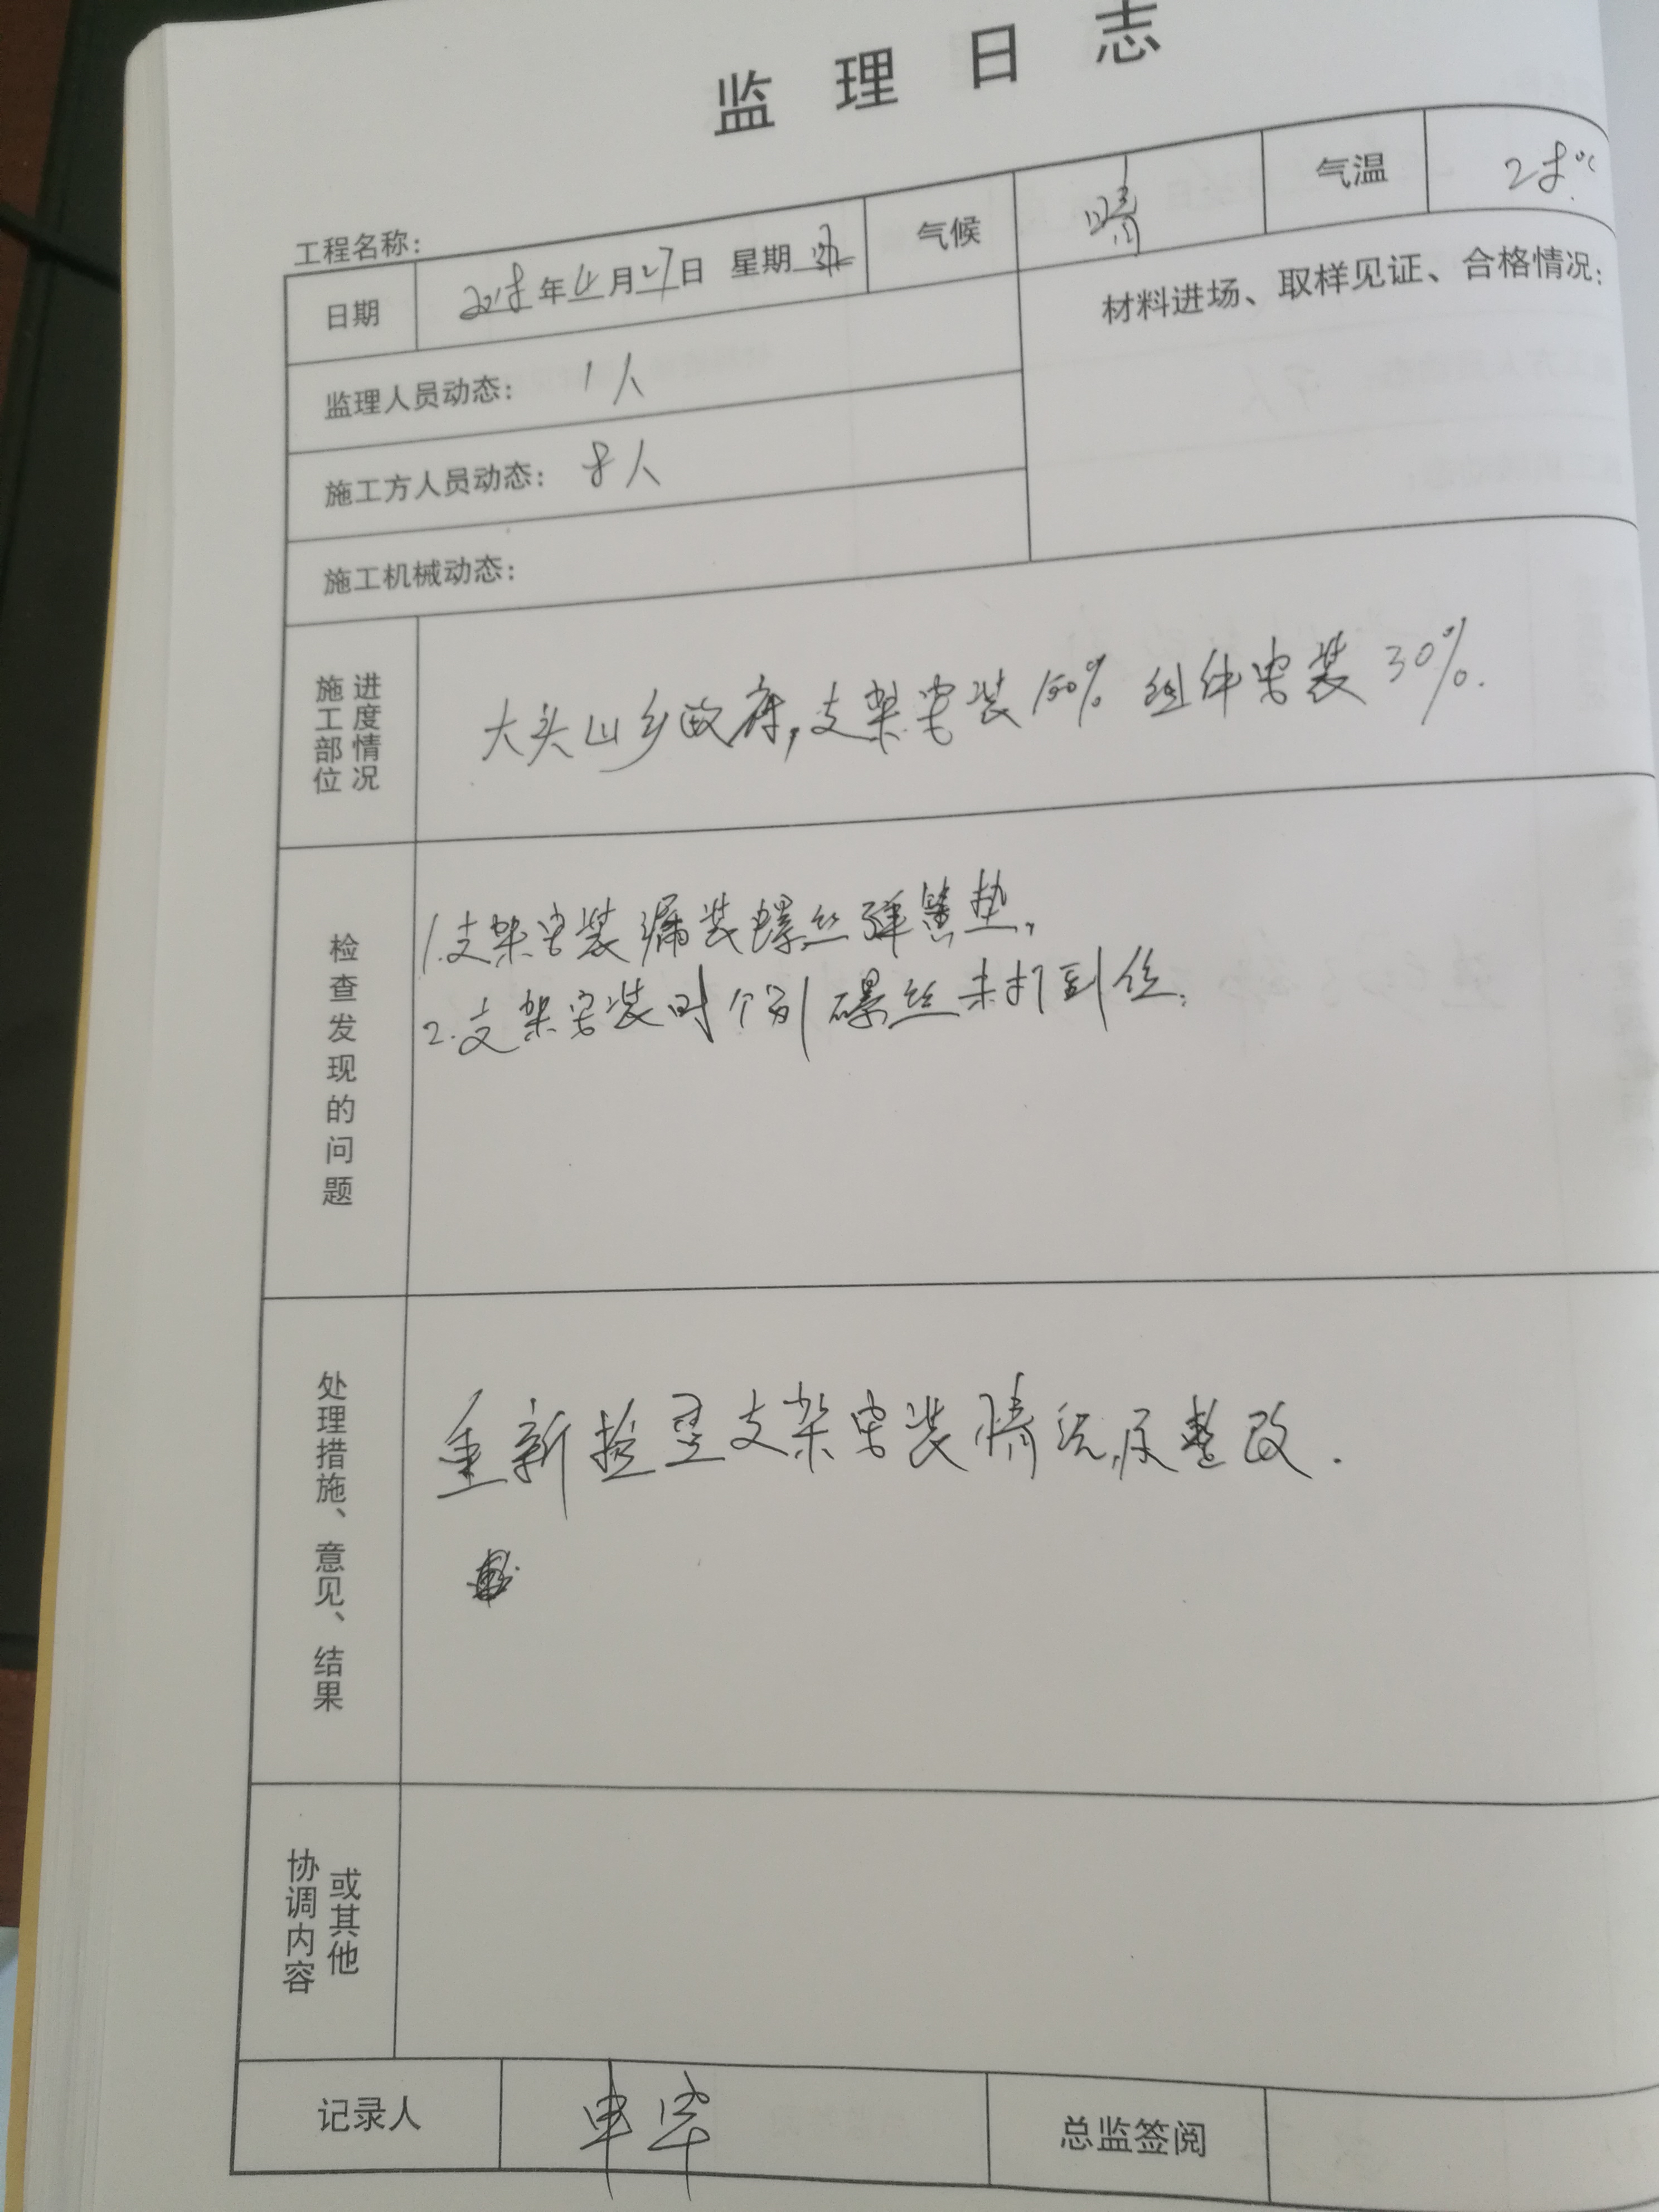 监理日志
工程名称：
日期 2018年4月27日 星期五 气候 晴 气温 28℃
监理人员动态： 1人
材料进场、取样见证、合格情况：
施工方人员动态： 8人
施工机械动态：
施工部位 进度情况
大头山乡政府，支架安装100% 组件安装30%.
检查发现的问题
1.支架安装漏装螺丝弹簧垫，
2.支架安装时个别螺丝未打到位；
处理措施、意见、结果
重新检查支架安装情况，尽整改.
协调内容 或其他
记录人 申华 总监签阅